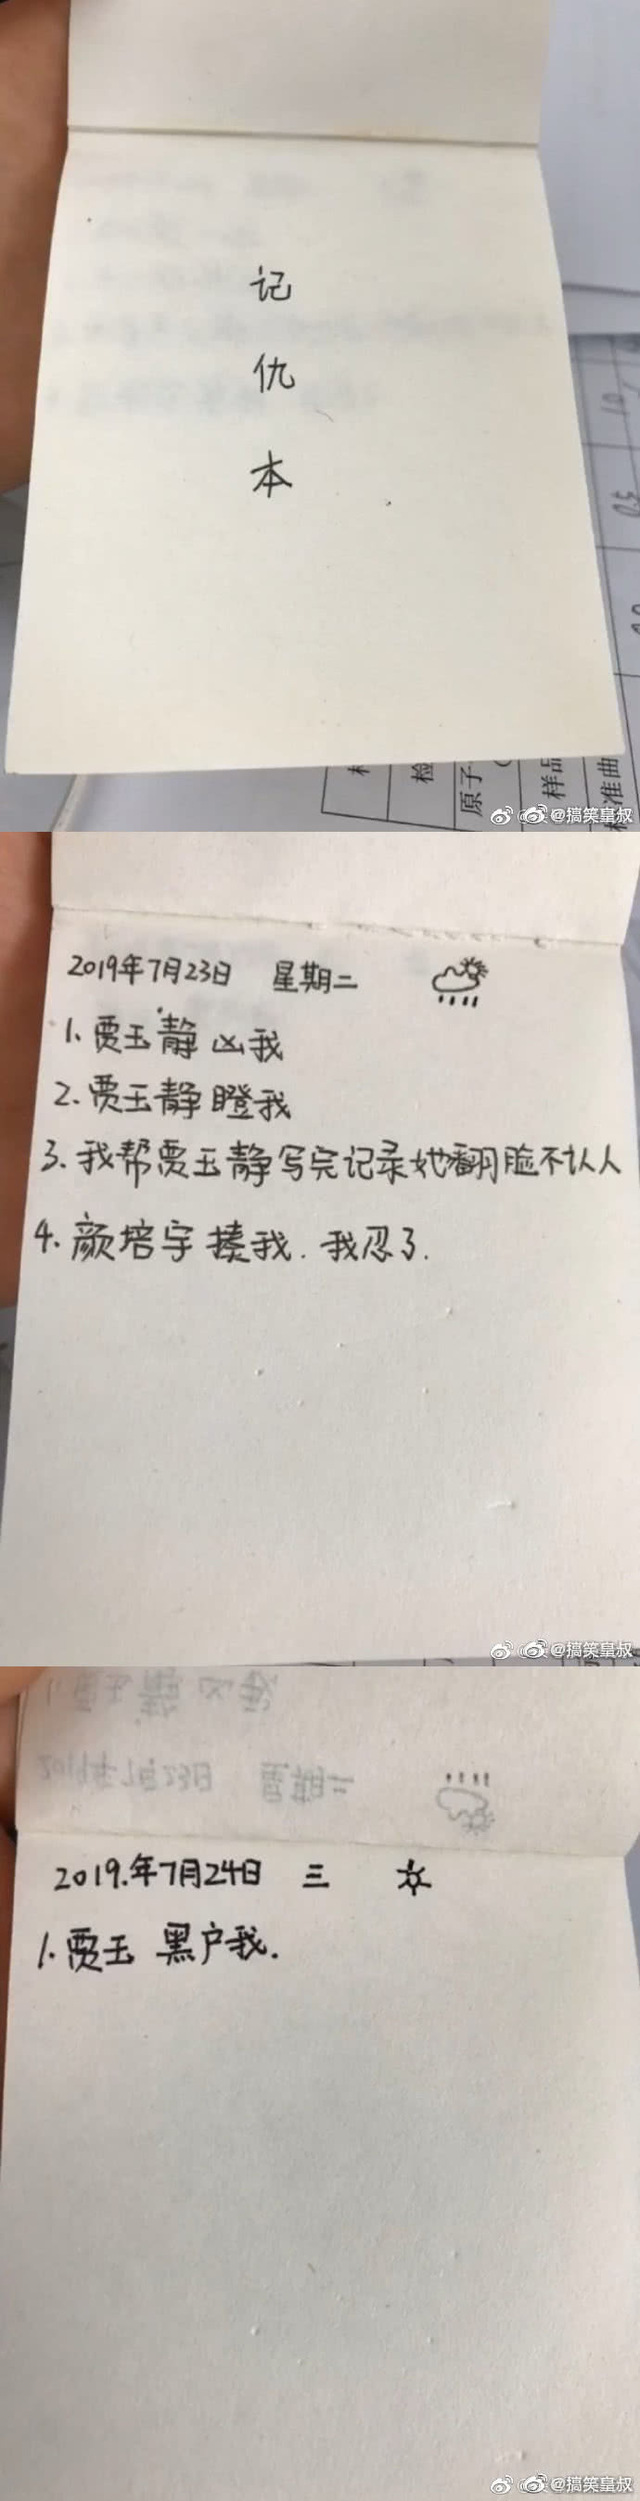 记
仇
本
10
0.5
检
原子
样品
准曲
@搞笑皇叔
2019年7月23日 星期二
1. 贾玉静 凶我
2. 贾玉静 瞪我
3. 我帮贾玉静写完记录她翻脸不认人
4. 颜培宇 揍我. 我忍了.
@搞笑皇叔
2019.年7月24日 三
1. 贾玉 黑户我.
@搞笑皇叔